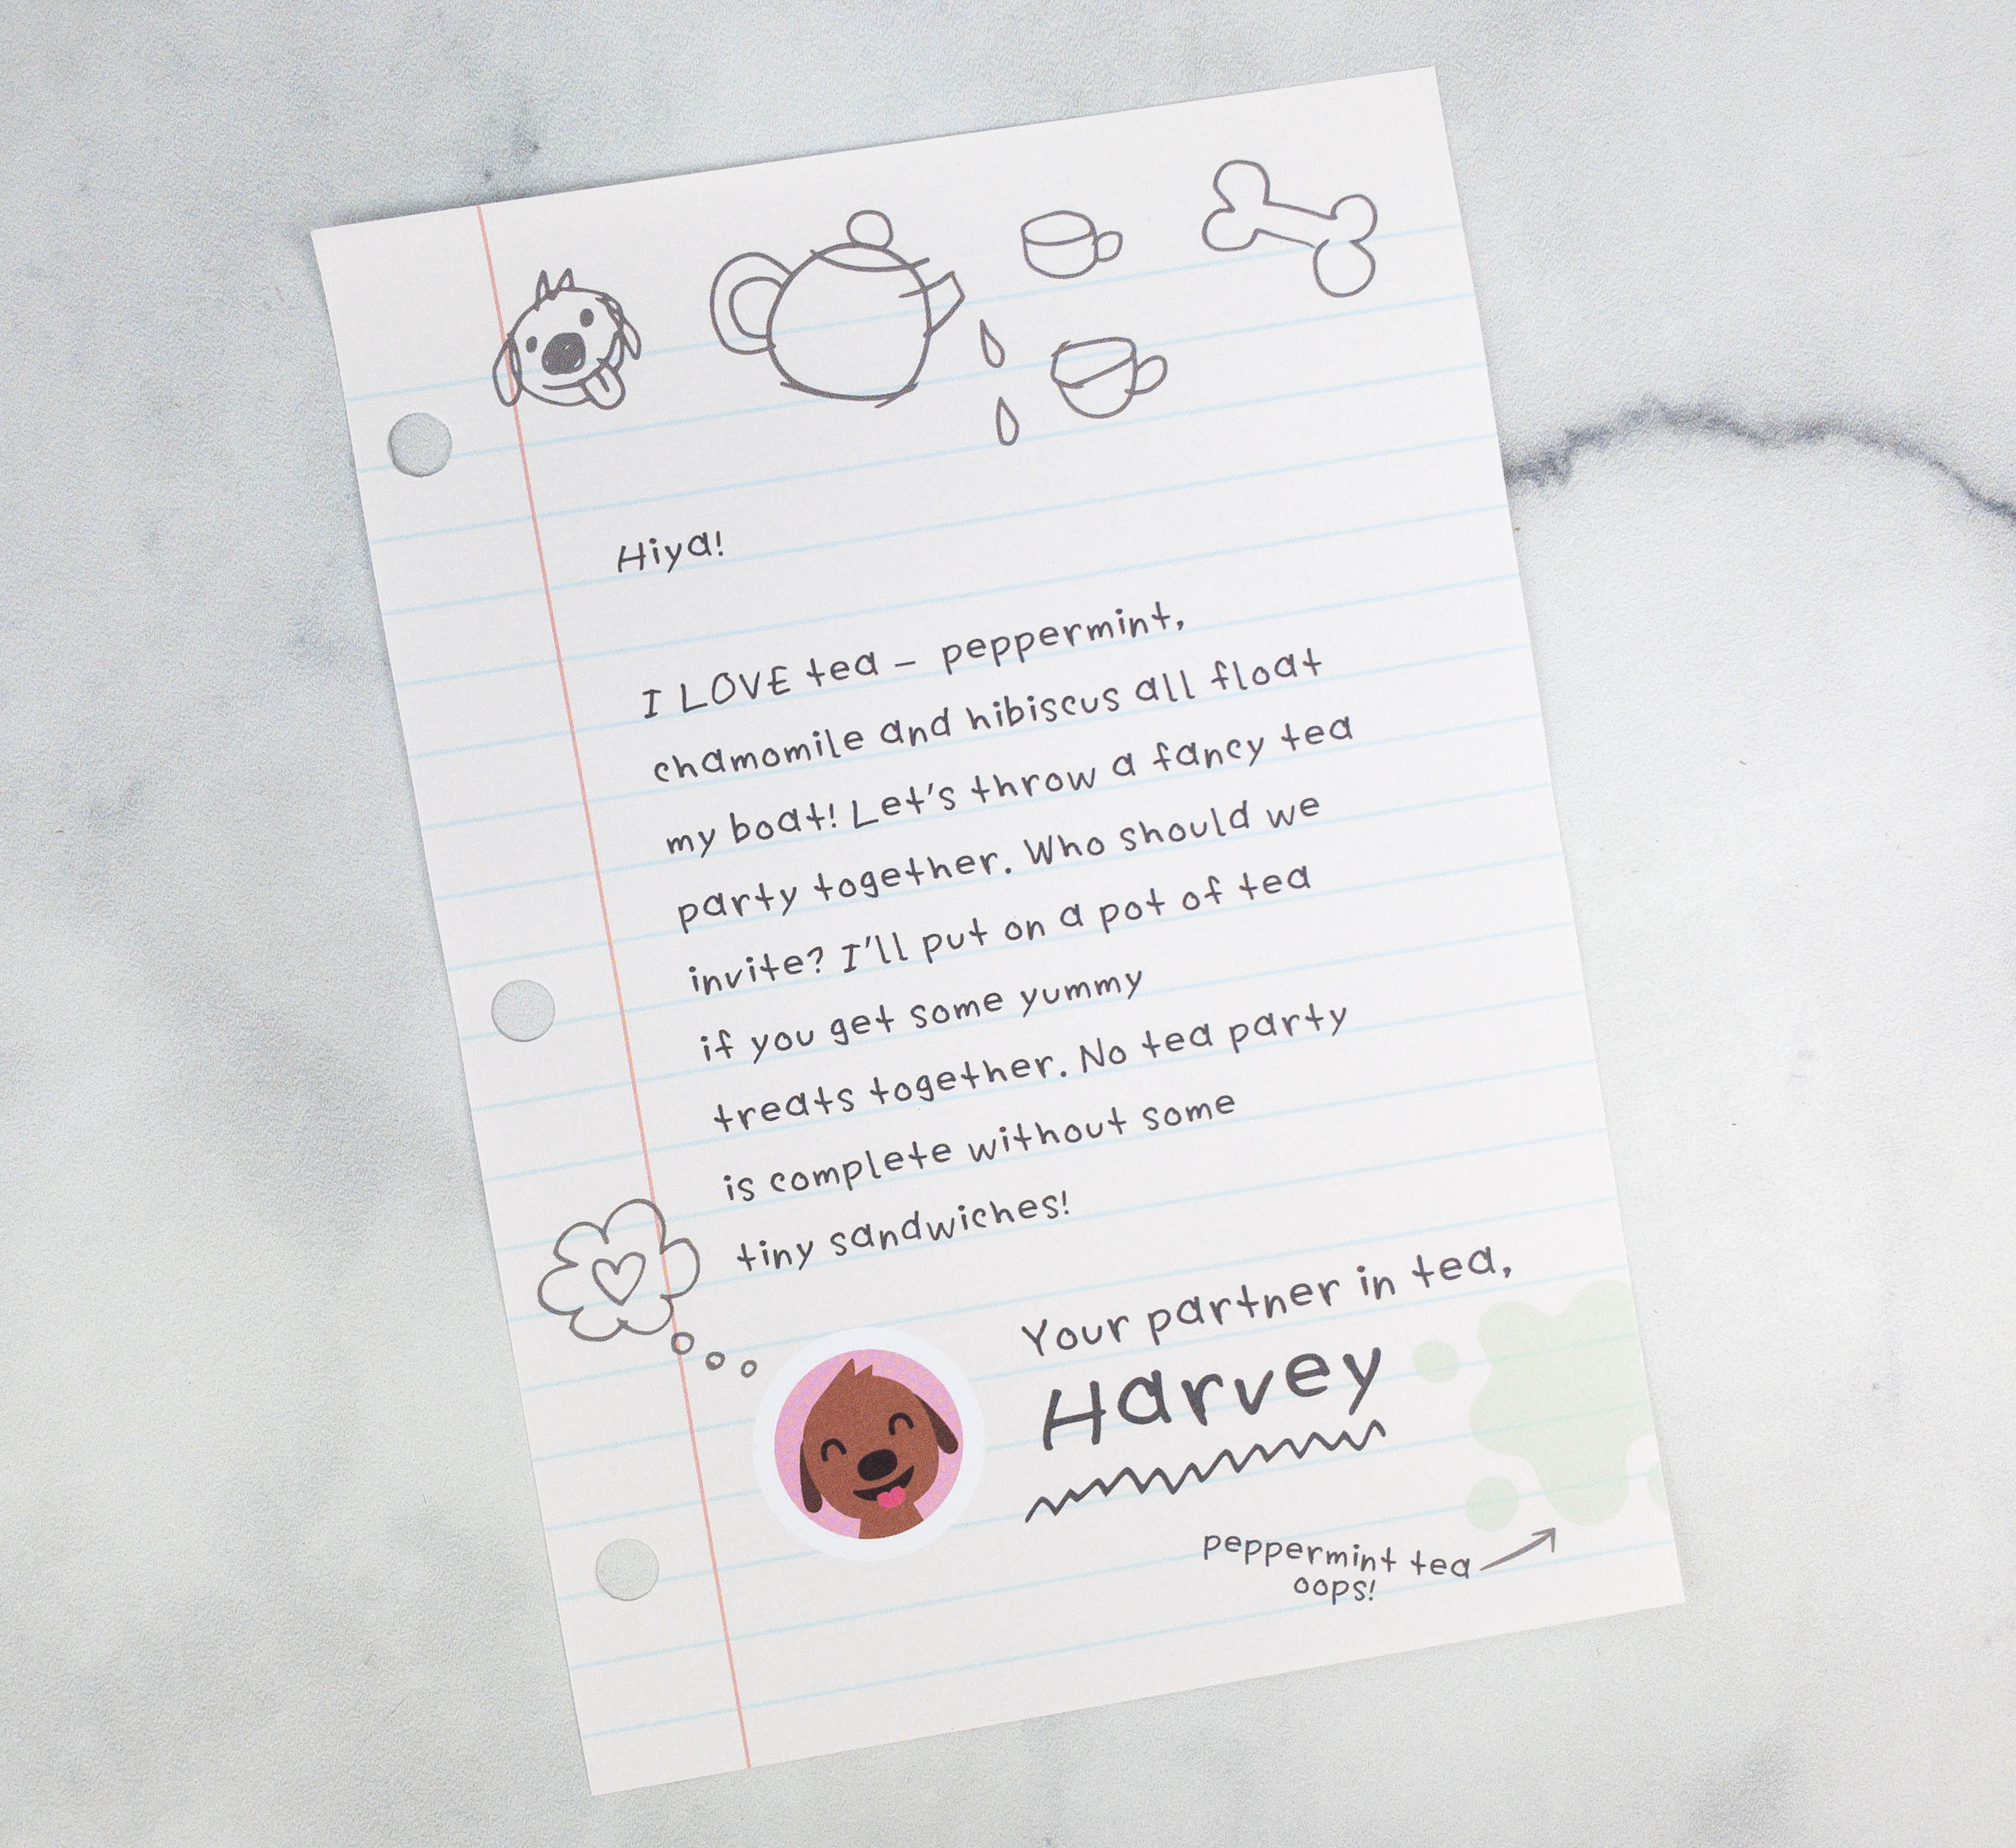 Hiya!
I LOVE tea – peppermint,
chamomile and hibiscus all float
my boat! Let's throw a fancy tea
party together. Who should we
invite? I'll put on a pot of tea
if you get some yummy
treats together. No tea party
is complete without some
tiny sandwiches!
Your partner in tea,
Harvey
peppermint tea
oops!